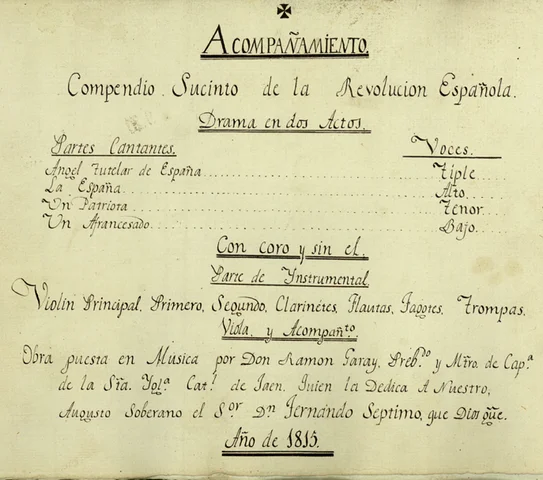 ACOMPAÑAMIENTO.
Compendio Sucinto de la Revolucion Española.
Drama en dos Actos.
Partes Cantantes. Voces.
Angel Tutelar de España Tiple
La España Alto
Un Patriota Tenor
Un Afrancesado Bajo
Con coro y sin el.
Parte de Ynstrumental
Violin Principal, Primero, Segundo, Clarinetes, Flautas, Fagotes, Trompas.
Viola, y Acompañ.to
Obra puesta en Música por Don Ramon Garay, Preb.do y Mtro. de Cap.a
de la Sta. Ygl.a Cat.l de Jaen. Quien la Dedica A Nuestro,
Augusto Soberano el S.or Dn Fernando Septimo, que Dios gũe.
Año de 1815.